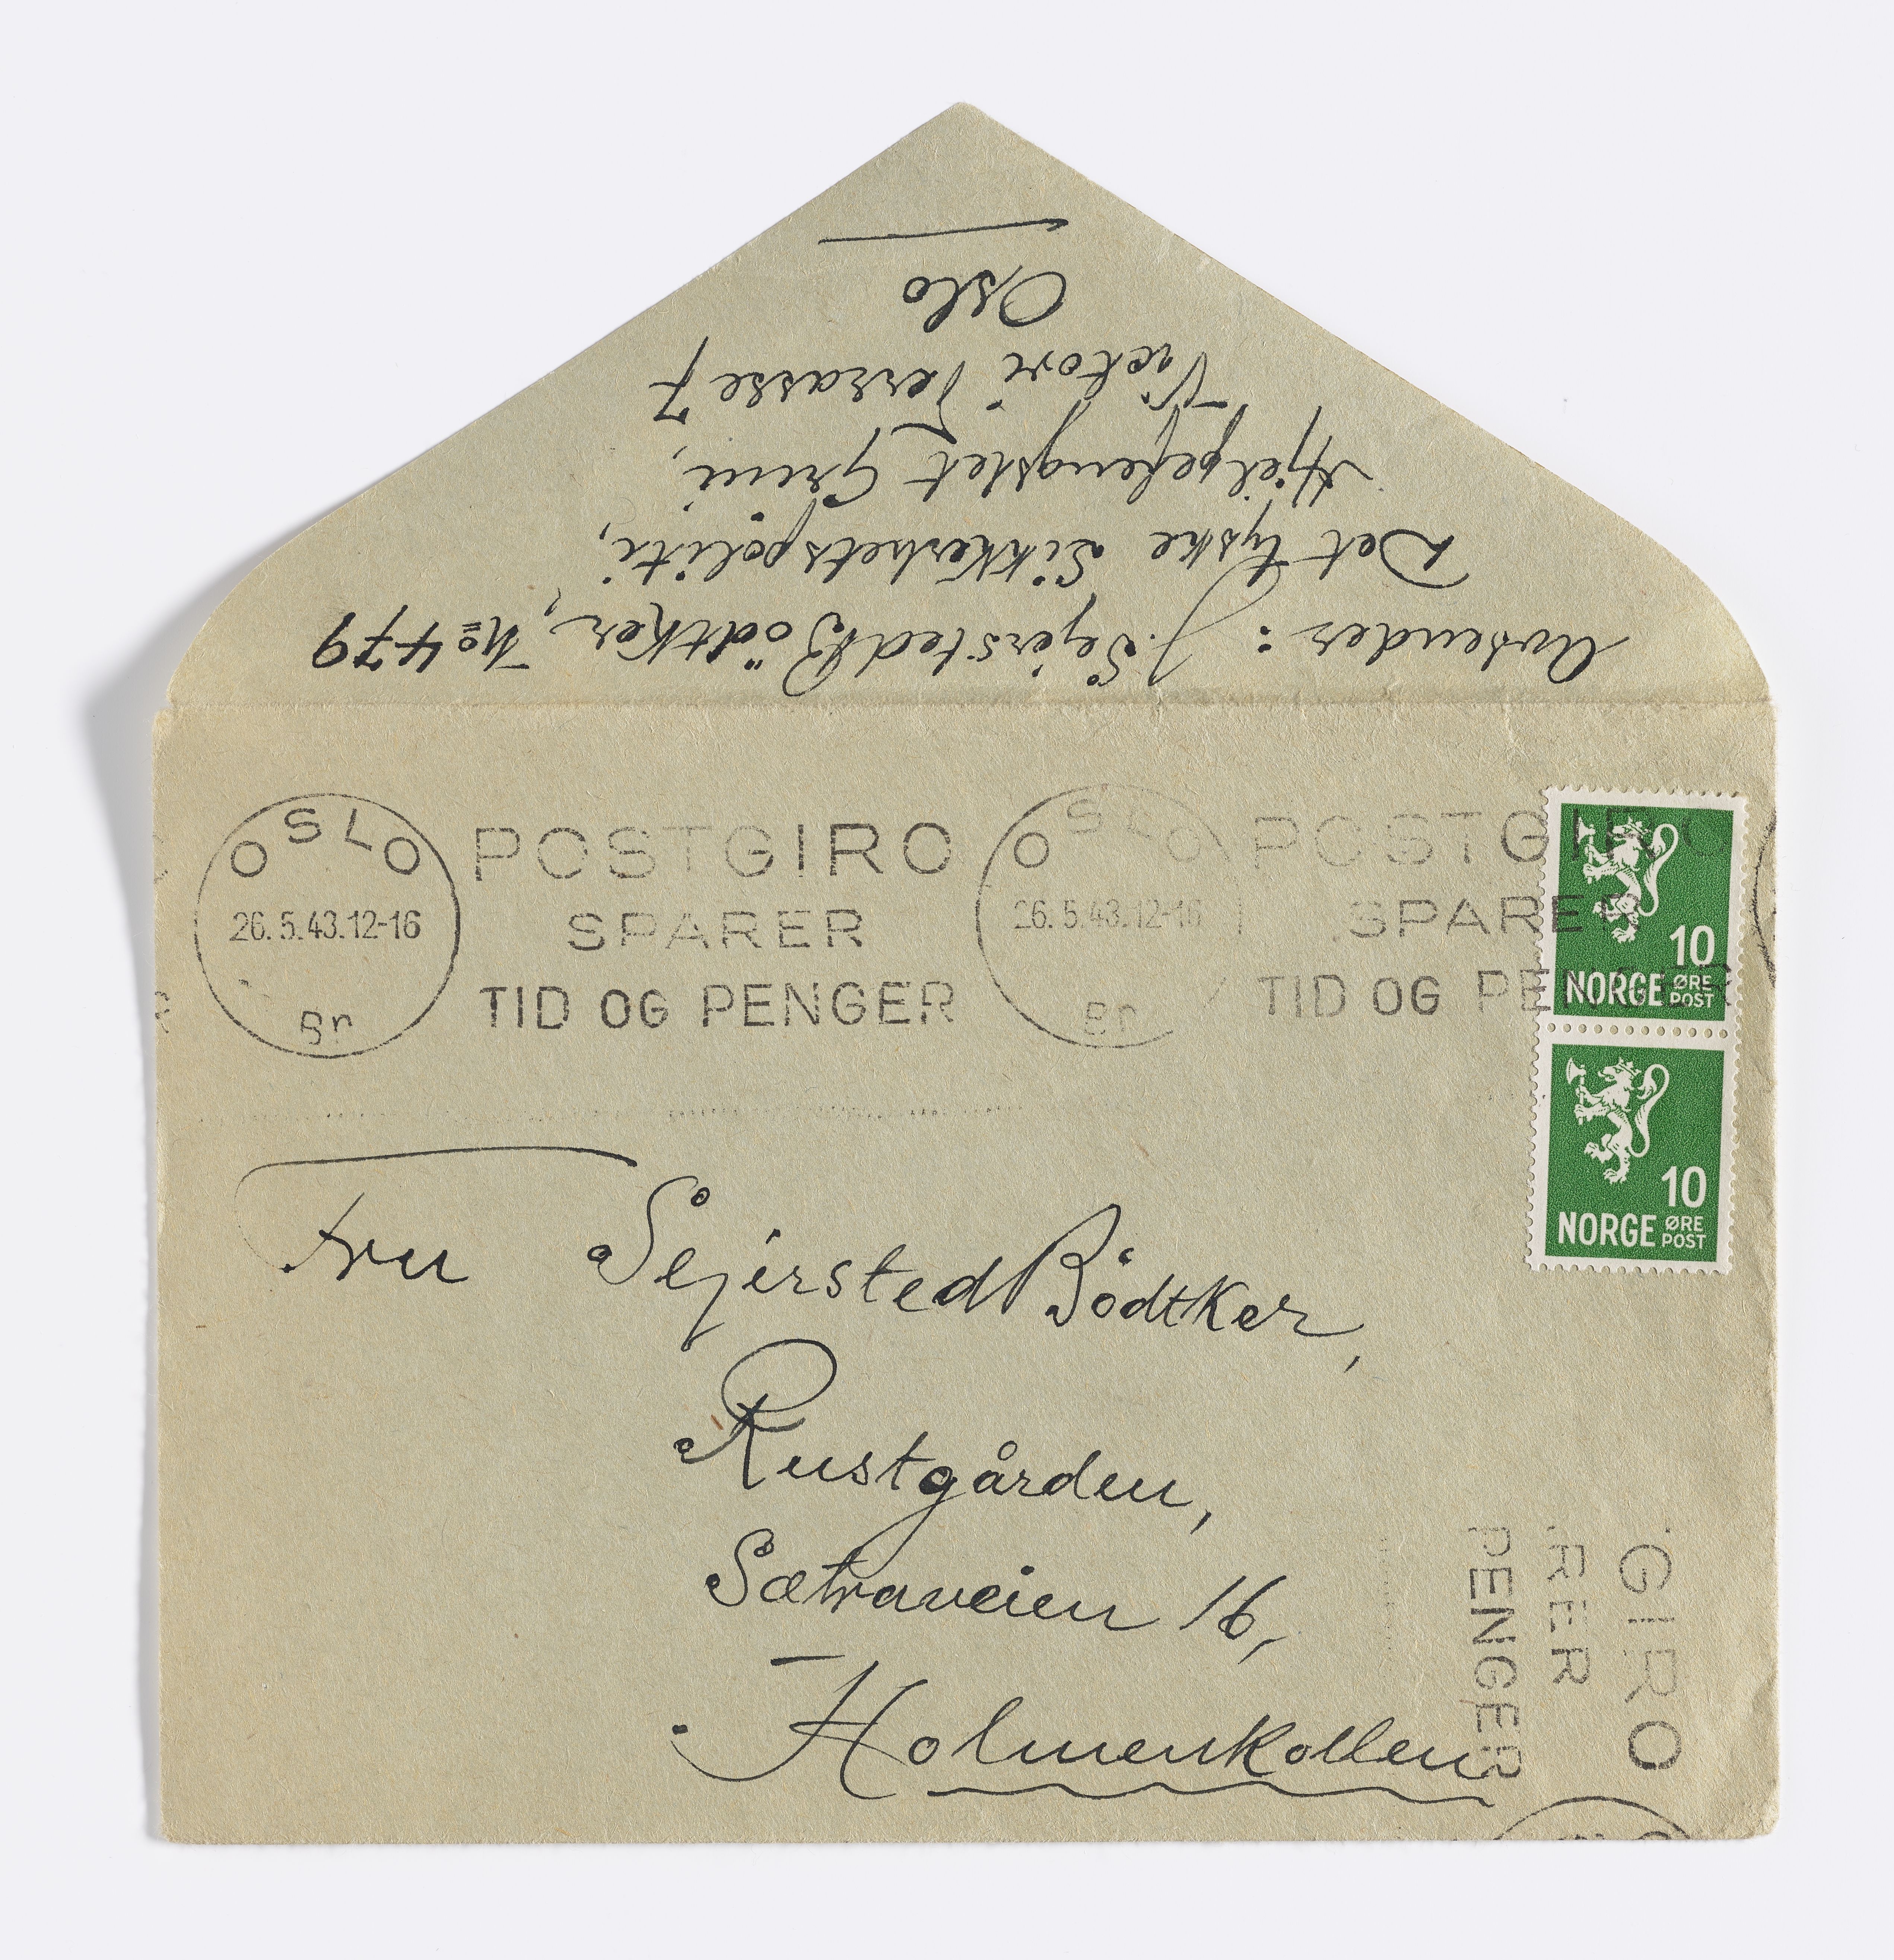 Avsender: J. Sejersted Bödtker, No 479
Det tyske Sikkerhetspoliti,
Hjelpefengslet Grini,
Victori Terrasse 7
Oslo
OSLO
26.5.43.12-16
Br
POSTGIRO
SPARER
TID OG PENGER
OSLO
26.5.43.12-16
Br
POSTGIRO
SPARER
TID OG PENGER
10
NORGE ØRE
POST
10
NORGE ØRE
POST
Fru Sejersted Bödtker,
Rustgården,
Sætraveien 16,
Holmenkollen
GIRO
RER
PENGER